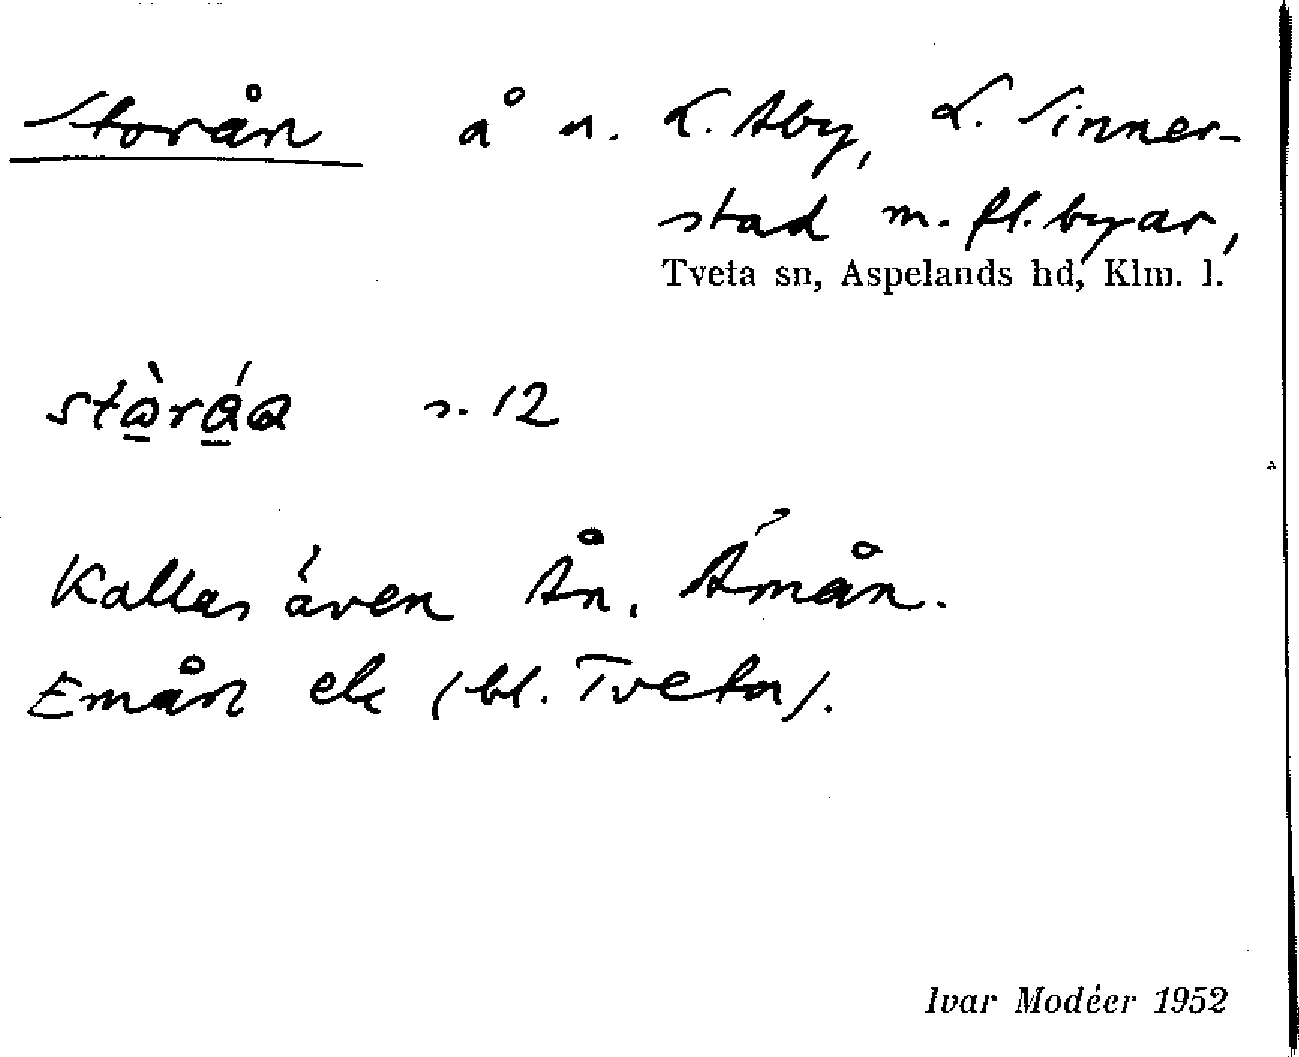 Storån å n. L. Åby, L. Sinner-
stad m. fl. byar,
Tveta sn, Aspelands hd, Klm. l.
s. 12
Kallas även Ån, Åmån.
Emån ek (bl. Tveta).
Ivar Modéer 1952